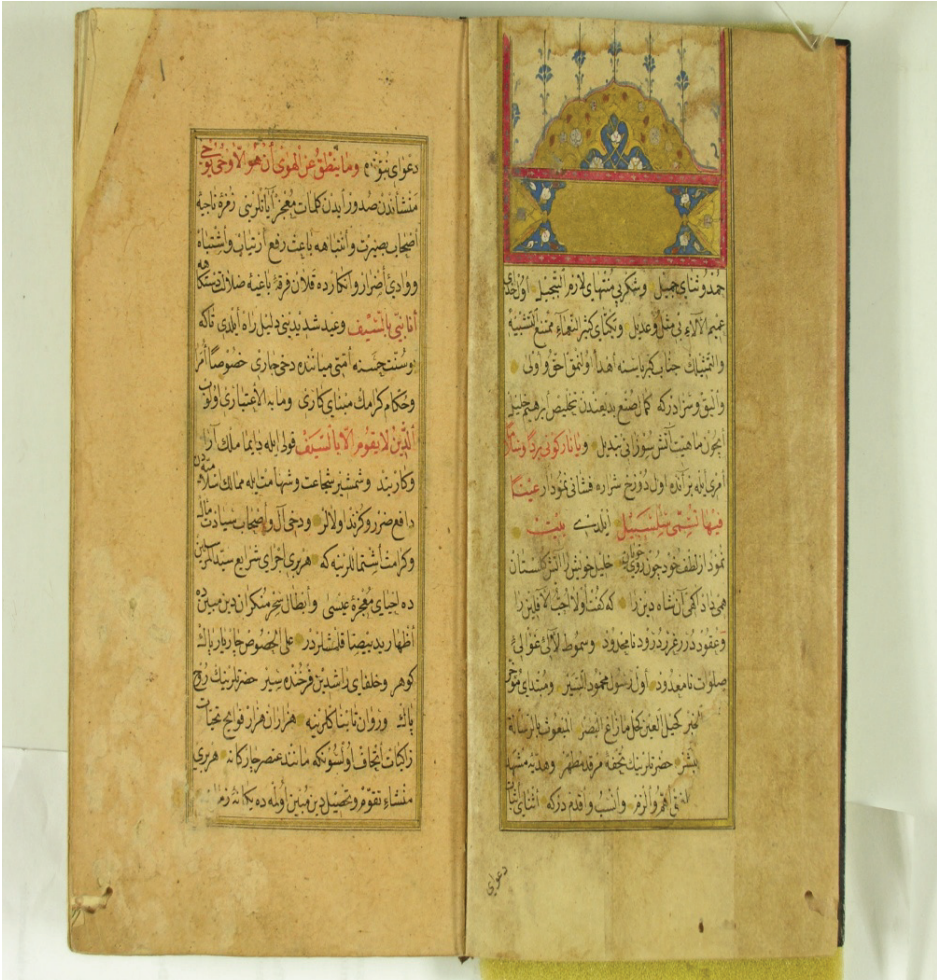 حمد و ثنای جمیل و شکر بی منتهای لازم التبجیل اول احدی
عمیم الآلاء بی مثل و عدیل و یکتای کثیر النعماء ممتنع التشبیه
والتمثیلك جناب کبریاسنه اهدا اولنمق احق و اولی
والیق و سزادرکه کمال صنع بدیعندن تخلیص ابرهیم خلیل
ایچون ماهیت آتش سوزانی تبدیل و یا نار کونی بردا وسلاما
امری ایله اول دوزخ شراره فشانی نمودار عینا
فیها تسمی سلسبیل ایلدی بیت
نمودار لطف خود چون خلیل خویش را آتش کلستان
همی داد آکهی آن شاه دین را که کفت اولا احب الآفلین را
و عقود درر غرر درود نامحدود و سموط لآلئ غوالئ
صلوات نامعدود اول رسول محمود السیر و مبتدای مؤخر
الخبر کحیل العین کحل مازاغ البصر المبعوث بالرسالة
حضرتلرینك تحفهٔ مرقد مطهر و هدیهٔ مشهد
اهم و الزم و انسب و اقدم درکه اثنای اثبات
دعوای
دعوای نبوتده وما ینطق عن الهوی ان هو الا وحی یوحی
منشأندن صدور ایدن کلمات معجز آیاتلرینی زمرهٔ ناجیهٔ
اصحاب بصیرت و انتباهه باعث رفع ارتیاب و اشتباه
و وادئ اضرار و انکارده قلان فرقهٔ باغیهٔ ضلالت دستکاهه
انا نبی بالسیف وعید شدیدینی دلیل راه ایلدی تاکه
بو سنت حسنه امتی میاننده دخی جاری خصوصا امرا
و حکام کرامك مبنای کاری و مابه الاعتباری اولوب
الدین لا یقوم الا بالسیف قولی ایله دایما ملك آرا
و کاربند و شمشیر شجاعت و شهامت ایله ممالك
دافع ضرر و کزند اولالر و دخی آل و اصحاب سیادت مآب
و کرامت اشتمالرینه که هر بری اجرای شرایع سید المرسلین
ده احیای معجزهٔ عیسی و ابطال سحر منکران دین مبین ده
اظهار ید بیضا قلمشلردر علی الخصوص چاریار پاك
کوهر و خلفای راشدین فرخنده سیر حضرتلرینك روح
پاك و روان تابناکلرینه هزاران هزار فوایح تحیات
زاکیات اتحاف اولسونکه مانند عنصر چارکانه هر بری
منشاء تقوم و تحصیل دین مبین اولمه ده یکانهٔ زمانه